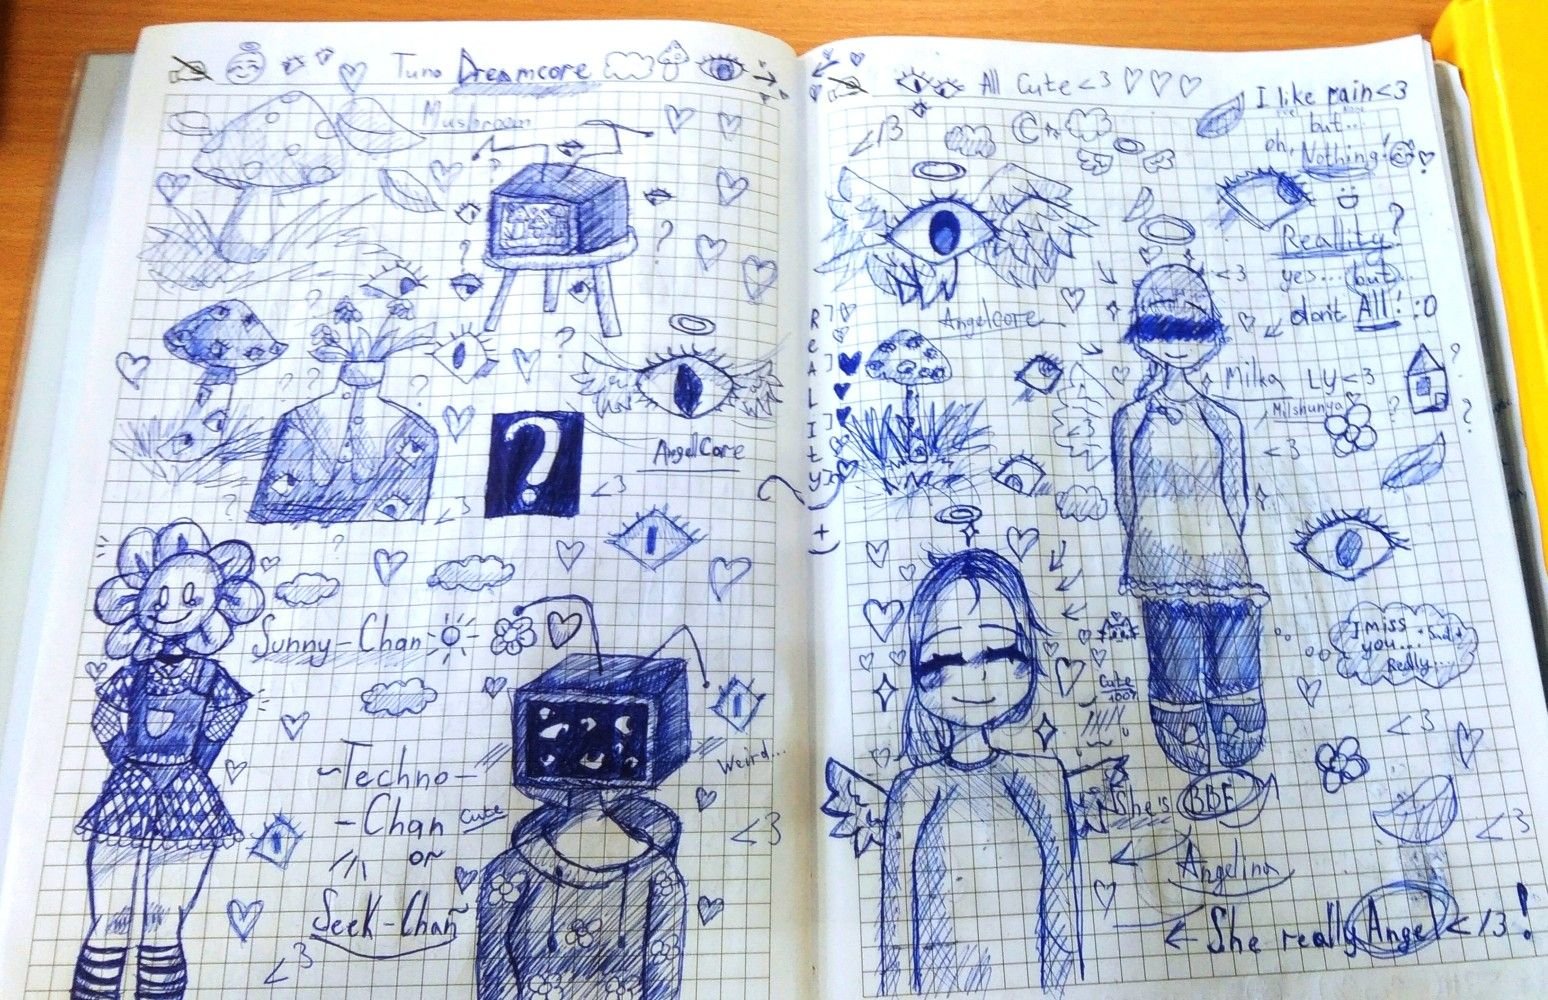 Tuno Dreamcore
Mushroom
?
AngelCore
<3
<3
Sunny-Chan
~Techno-
-Chan
Cute
or
Seek-Chan~
<3
Weird...
<3
All Cute<3
I like pain<3
but...
oh, Nothing!
Reallity?
yes...(but)...
don't All! :O
</3
<3
Angelcore
ReALIty
(+)
Milka LY<3
Milshunya
<3
<3
I miss
you...
Really...
Sad
<3
Cute
100%
She's BBF
Angelina
<3
She really Angel </3!